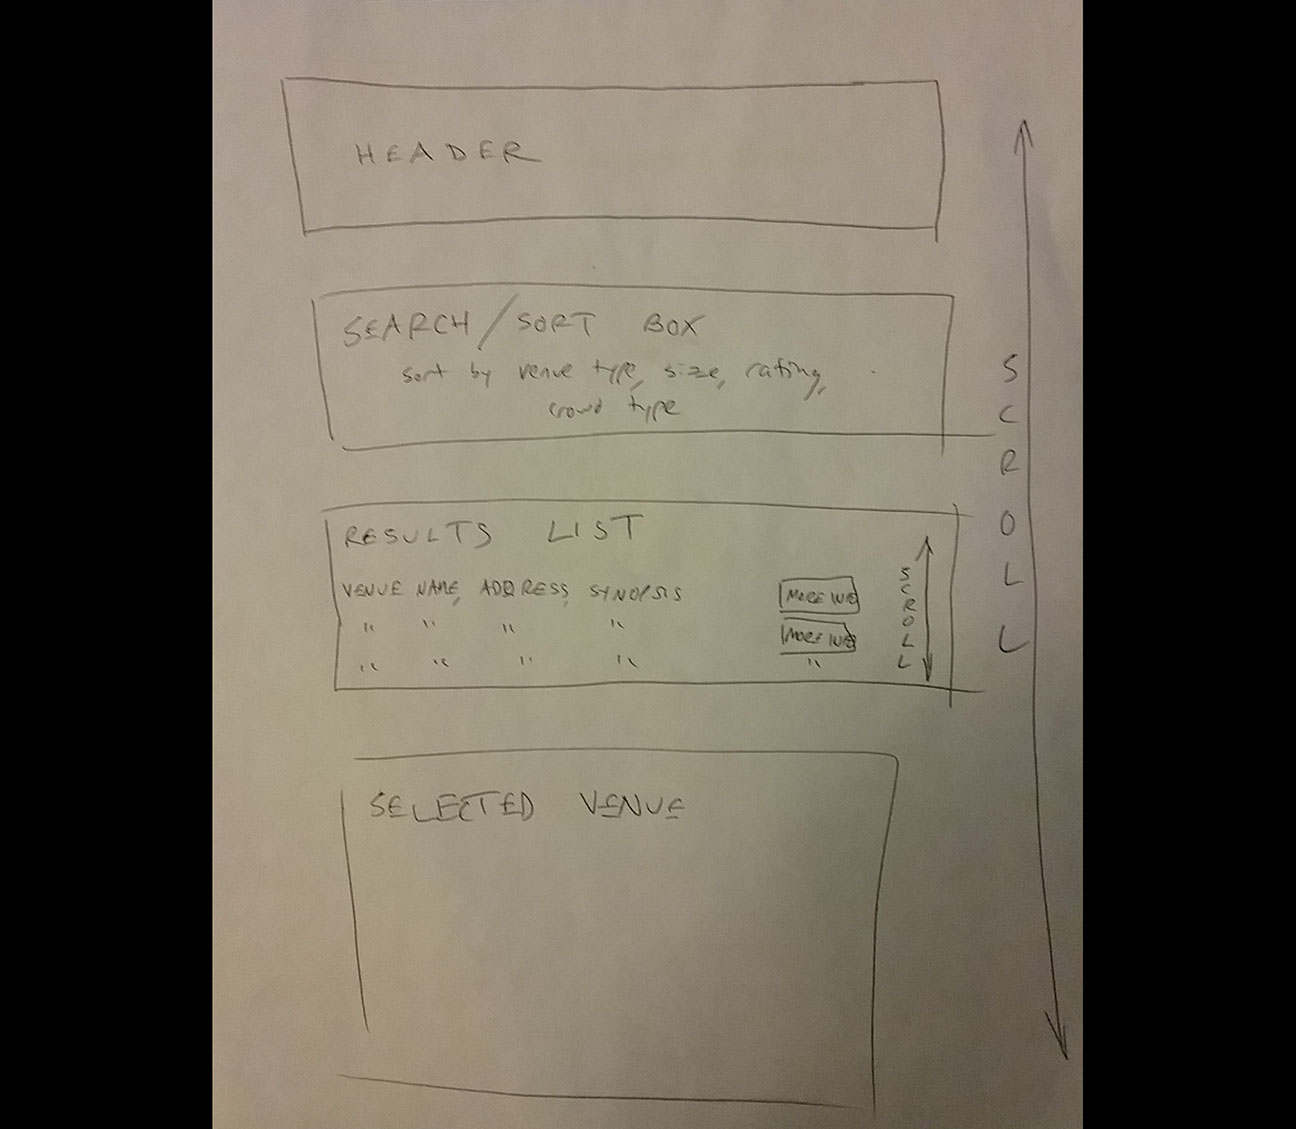 HEADER
SEARCH / SORT BOX
sort by venue type, size, rating,
crowd type
RESULTS LIST
VENUE NAME, ADDRESS, SYNOPSIS MORE INFO
" " " " MORE INFO
" " " " "
SCROLL
SELECTED VENUE
SCROLL